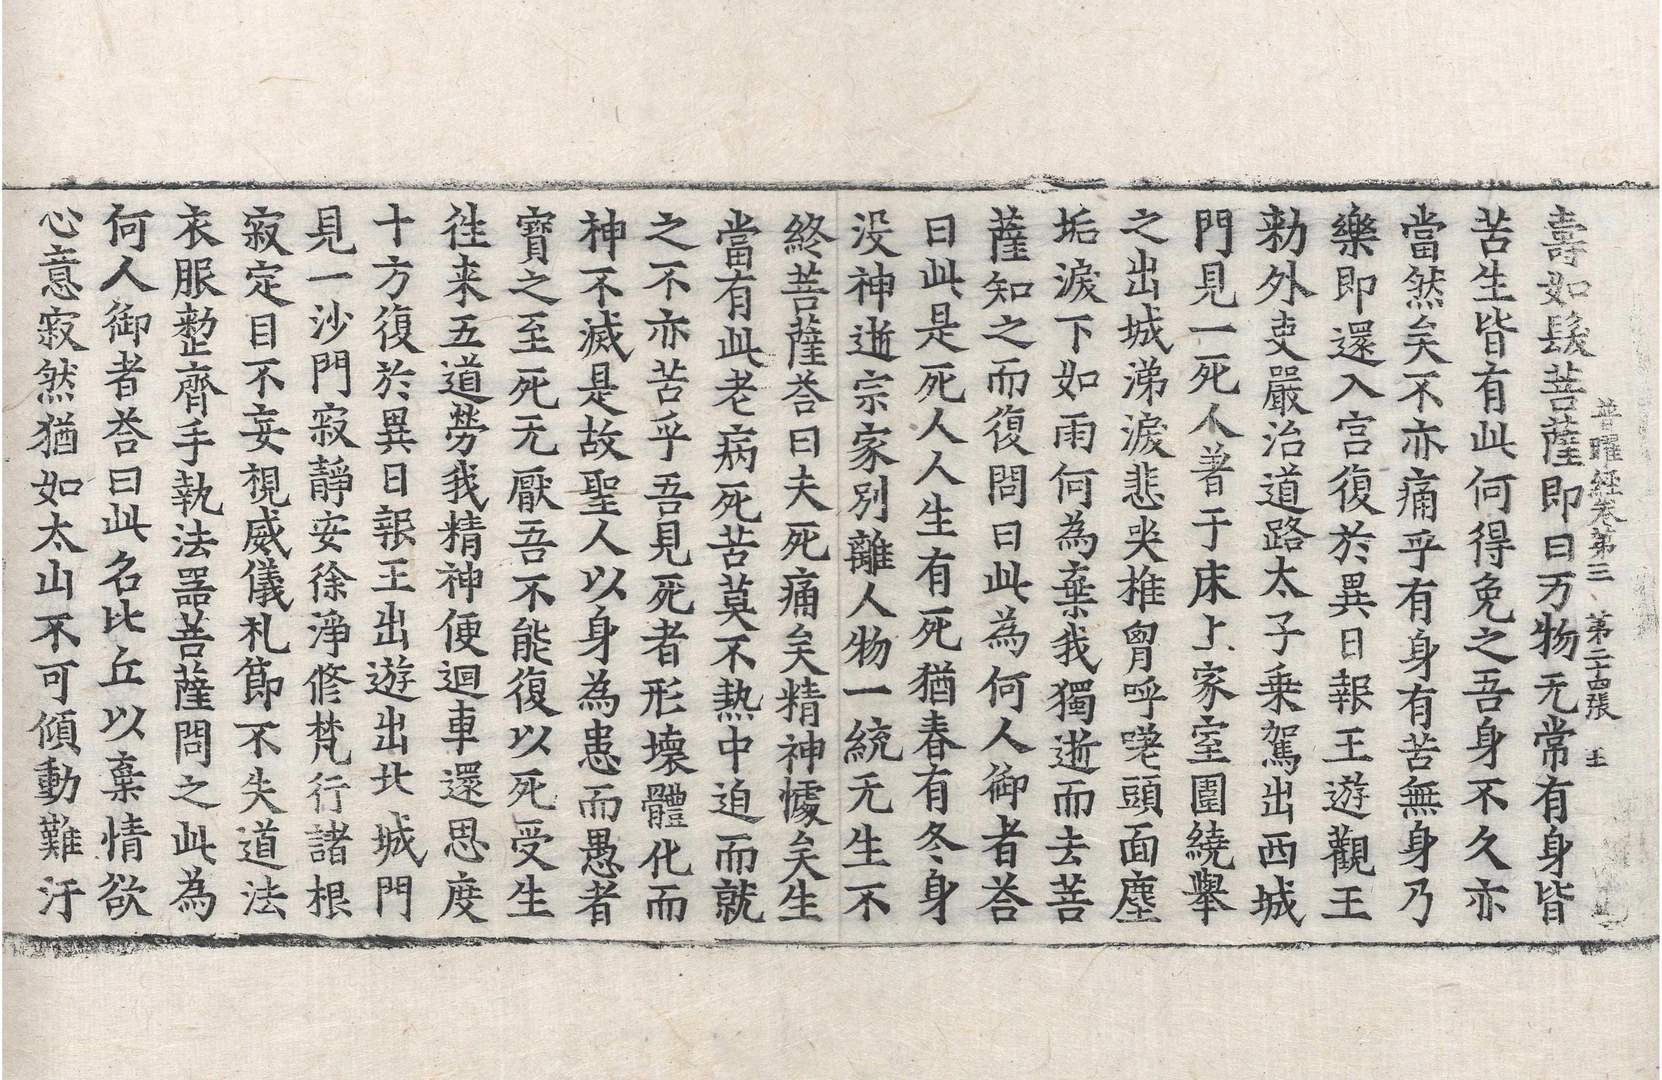 普曜經卷第三 第二十四張 王
壽如髮菩薩即曰万物无常有身皆
苦生皆有此何得免之吾身不久亦
當然矣不亦痛乎有身有苦無身乃
樂即還入宮復於異日報王遊觀王
勑外吏嚴治道路太子乘駕出西城
門見一死人著于床上家室圍繞舉
之出城涕淚悲哭椎胷呼嗟頭面塵
垢淚下如雨何為棄我獨逝而去菩
薩知之而復問曰此為何人御者荅
曰此是死人人生有死猶春有冬身
没神逝宗家別離人物一統无生不
終菩薩荅曰夫死痛矣精神懅矣生
當有此老病死苦莫不熱中迫而就
之不亦苦乎吾見死者形壞體化而
神不滅是故聖人以身為患而愚者
寶之至死无厭吾不能復以死受生
往来五道勞我精神便迴車還思度
十方復於異日報王出遊出北城門
見一沙門寂靜安徐淨修梵行諸根
寂定目不妄視威儀礼節不失道法
衣服整齊手執法器菩薩問之此為
何人御者荅曰此名比丘以棄情欲
心意寂然猶如太山不可傾動難汙